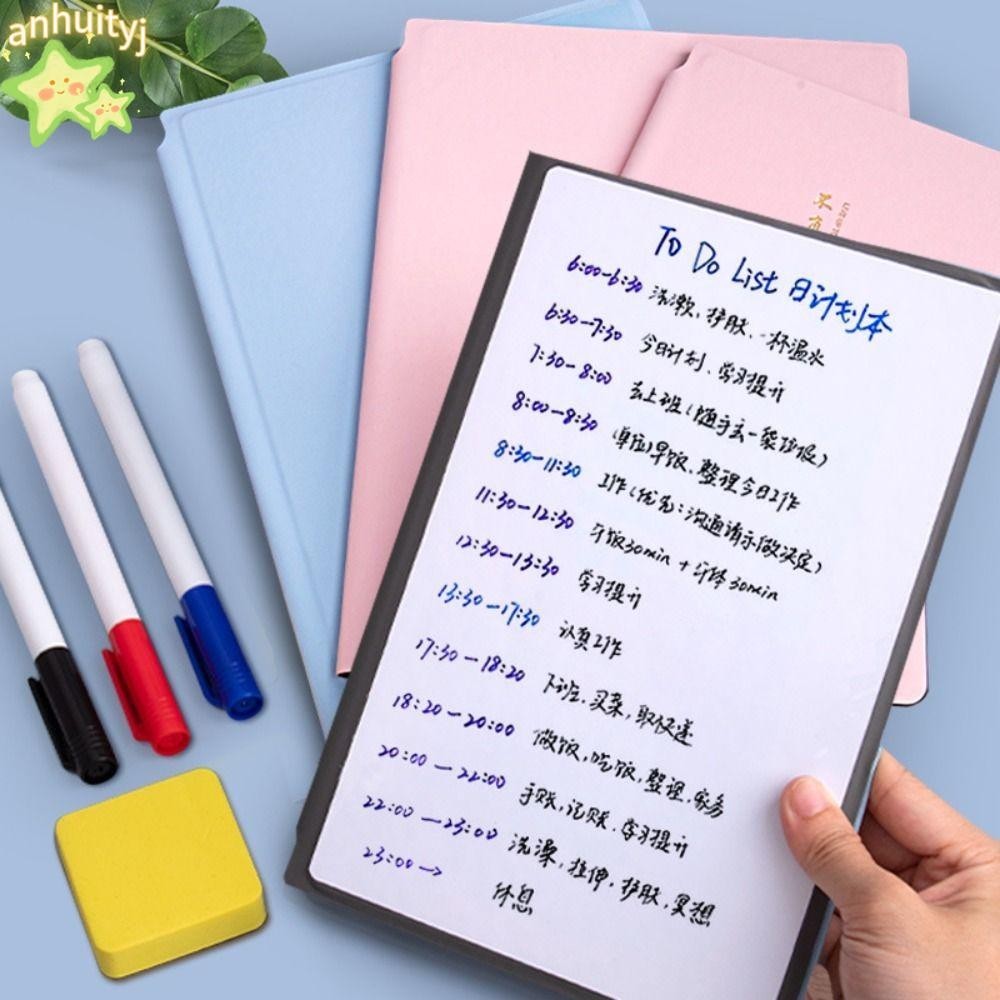 anhuityj
To Do List 日计划本
6:00-6:30 洗漱、护肤、一杯温水
6:30-7:30 今日计划、学习提升
7:30-8:00 去上班(随手丢一袋垃圾)
8:00-8:30 (单位)早饭、整理今日工作
8:30-11:30 工作(优先:沟通请示做决定)
11:30-12:30 午饭30min + 午休30min
12:30-13:30 学习提升
13:30-17:30 认真工作
17:30-18:20 下班、买菜,取快递
18:20-20:00 做饭,吃饭,整理,家务
20:00-22:00 手账,记账,学习提升
22:00-23:00 洗澡,拉伸,护肤,冥想
23:00→ 休息